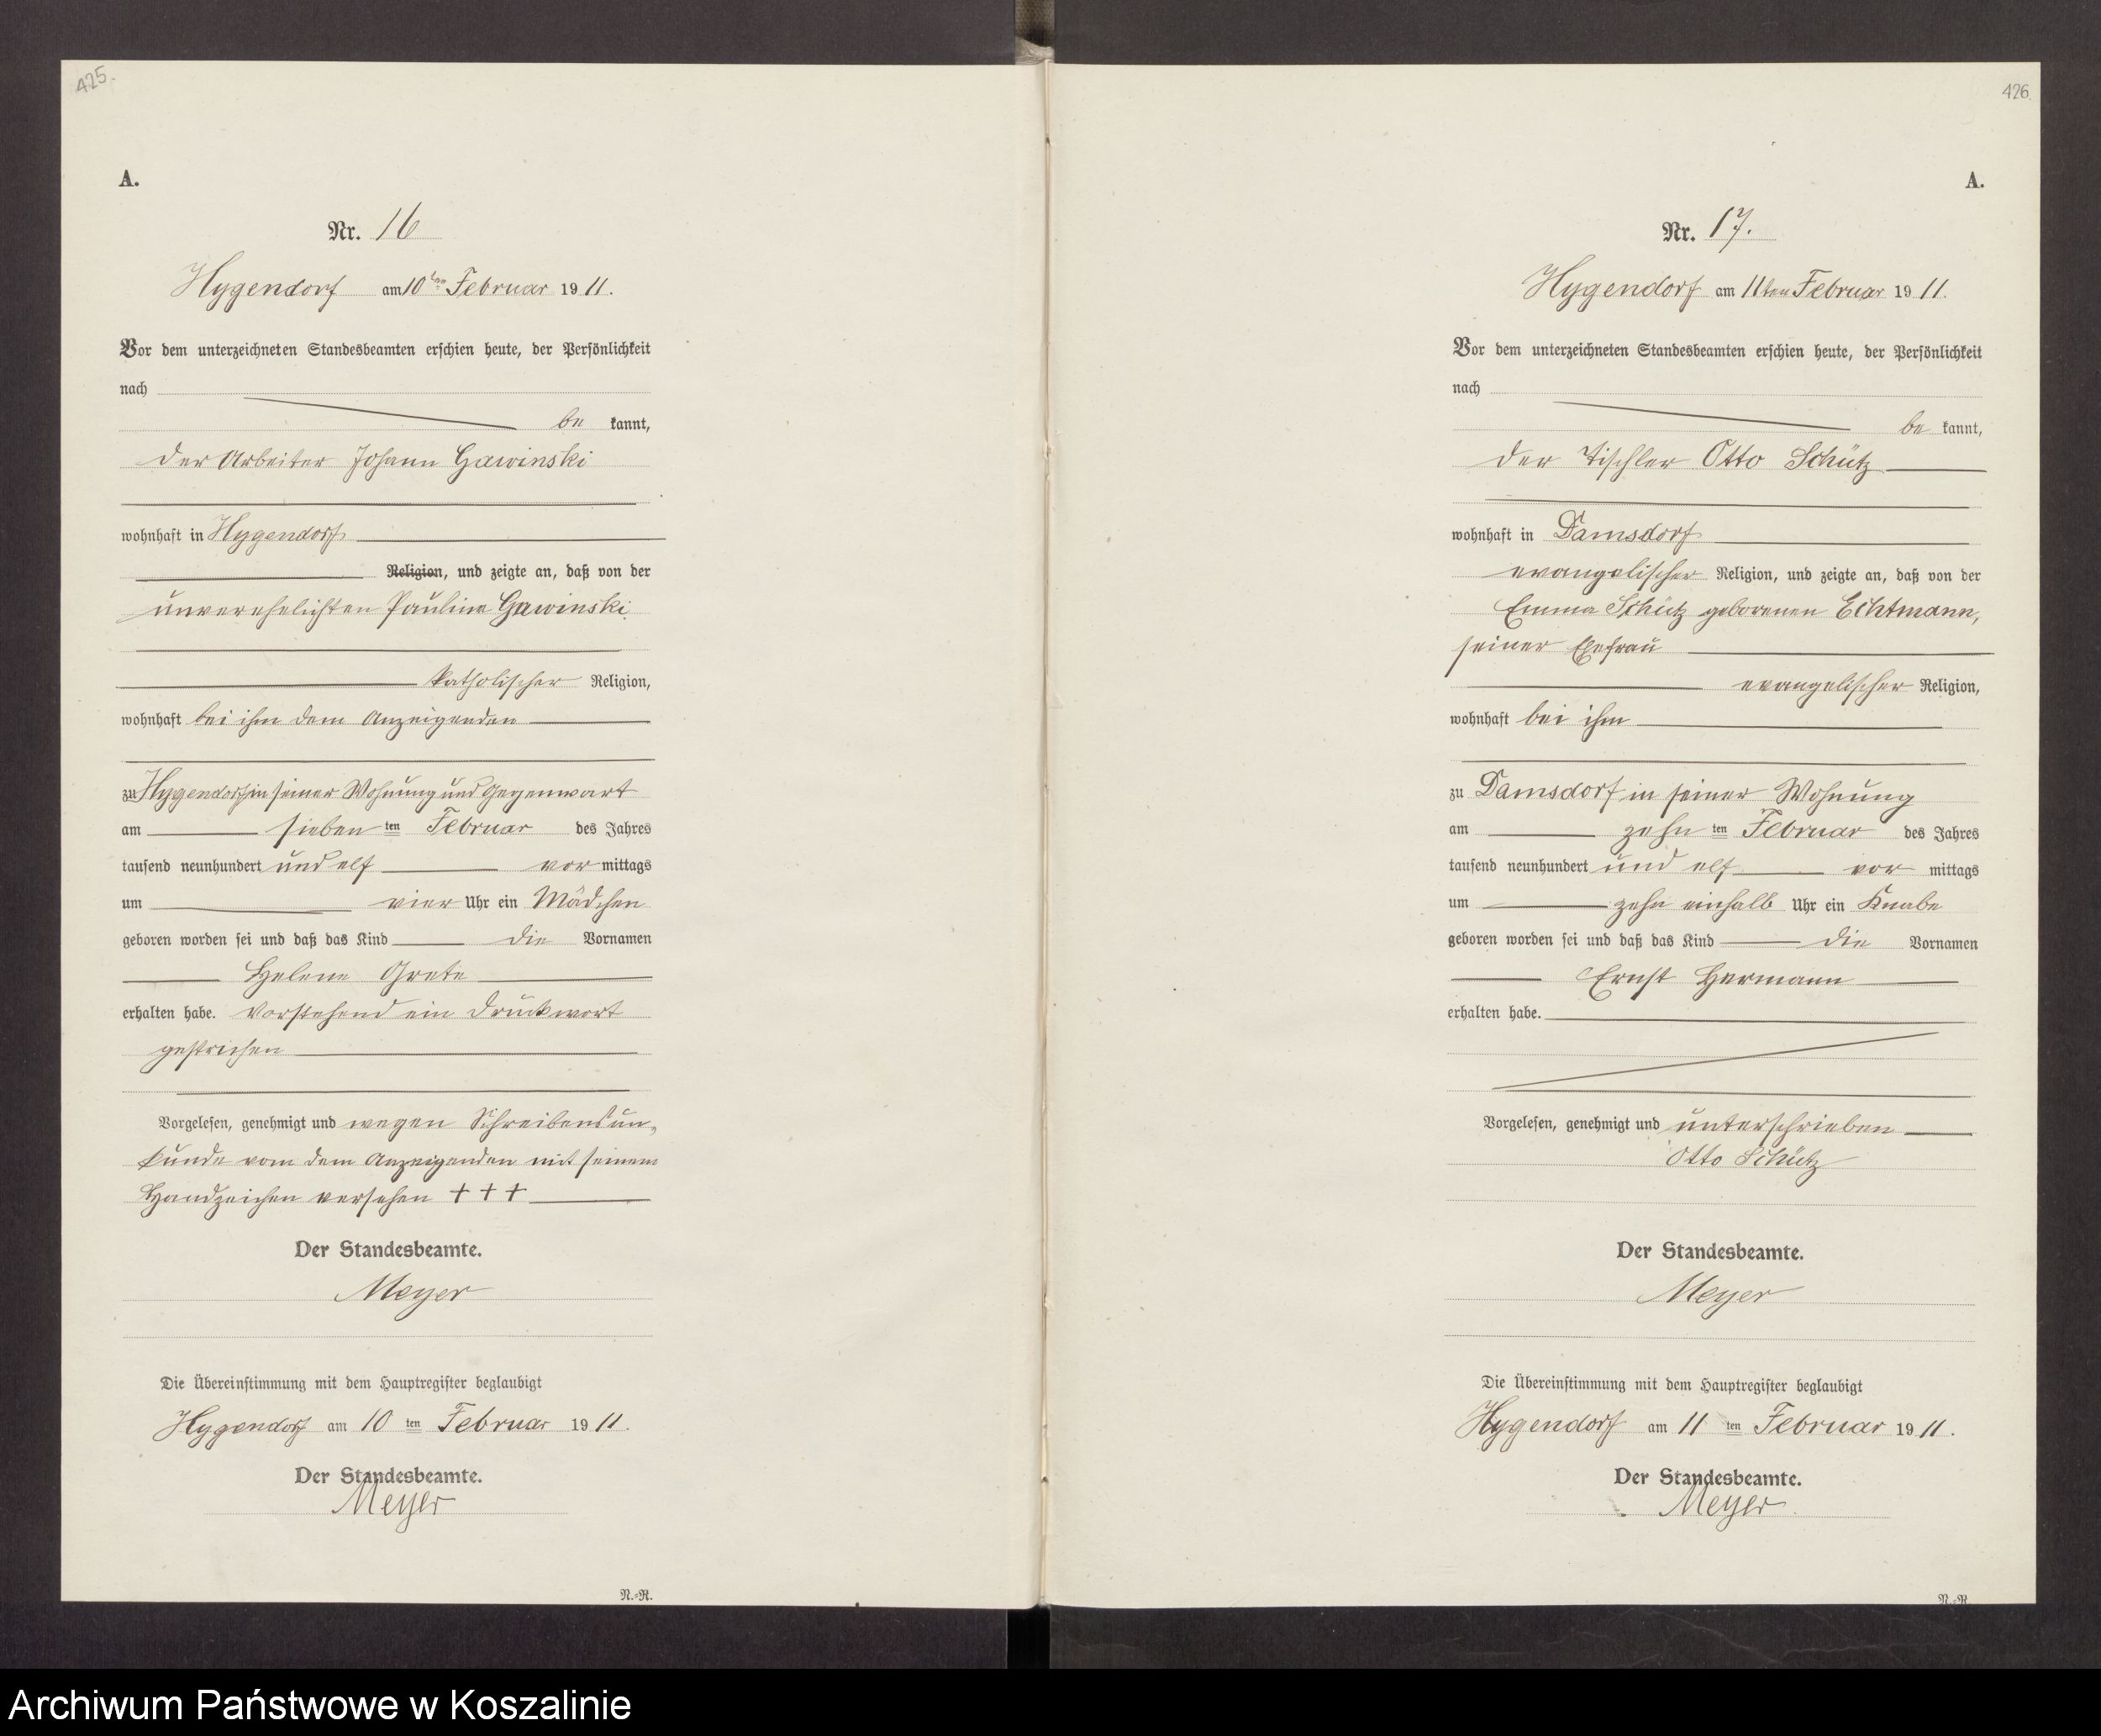 425.
A.
Nr. 16
Hygendorf am 10ten Februar 1911.
Vor dem unterzeichneten Standesbeamten erschien heute, der Persönlichkeit
nach
be kannt,
der Arbeiter Johann Gawinski
wohnhaft in Hygendorf
Religion, und zeigte an, daß von der
unverehelichten Pauline Gawinski
katholischer Religion,
wohnhaft bei ihm dem Anzeigenden
zu Hygendorf in seiner Wohnung und Gegenwart
am sieben ten Februar des Jahres
tausend neunhundert und elf vor mittags
um vier Uhr ein Mädchen
geboren worden sei und daß das Kind die Vornamen
Helene Grete
erhalten habe. Vorstehend ein Druckwort
gestrichen
Vorgelesen, genehmigt und wegen Schreibensun-
kunde vom dem Anzeigenden mit seinem
Handzeichen versehen + + +
Der Standesbeamte.
Meyer
Die Übereinstimmung mit dem Hauptregister beglaubigt
Hygendorf am 10 ten Februar 1911.
Der Standesbeamte.
Meyer
N.-R.
426
A.
Nr. 17.
Hygendorf am 11ten Februar 1911.
Vor dem unterzeichneten Standesbeamten erschien heute, der Persönlichkeit
nach
be kannt,
der Tischler Otto Schütz
wohnhaft in Damsdorf
evangelischer Religion, und zeigte an, daß von der
Emma Schütz geborenen Echtmann,
seiner Ehefrau
evangelischer Religion,
wohnhaft bei ihm
zu Damsdorf in seiner Wohnung
am zehn ten Februar des Jahres
tausend neunhundert und elf vor mittags
um zehn einhalb Uhr ein Knabe
geboren worden sei und daß das Kind die Vornamen
Ernst Hermann
erhalten habe.
Vorgelesen, genehmigt und unterschrieben
Otto Schütz
Der Standesbeamte.
Meyer
Die Übereinstimmung mit dem Hauptregister beglaubigt
Hygendorf am 11 ten Februar 1911.
Der Standesbeamte.
Meyer
N.-R.
Archiwum Państwowe w Koszalinie